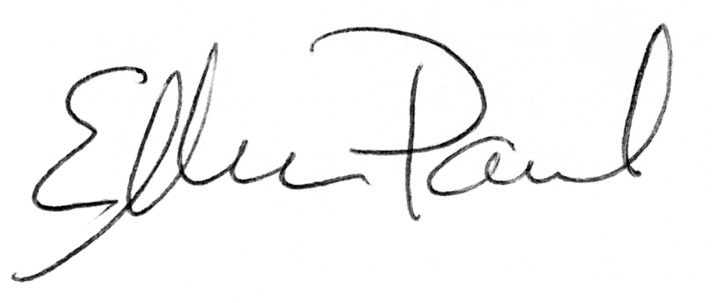 Ellen Paul